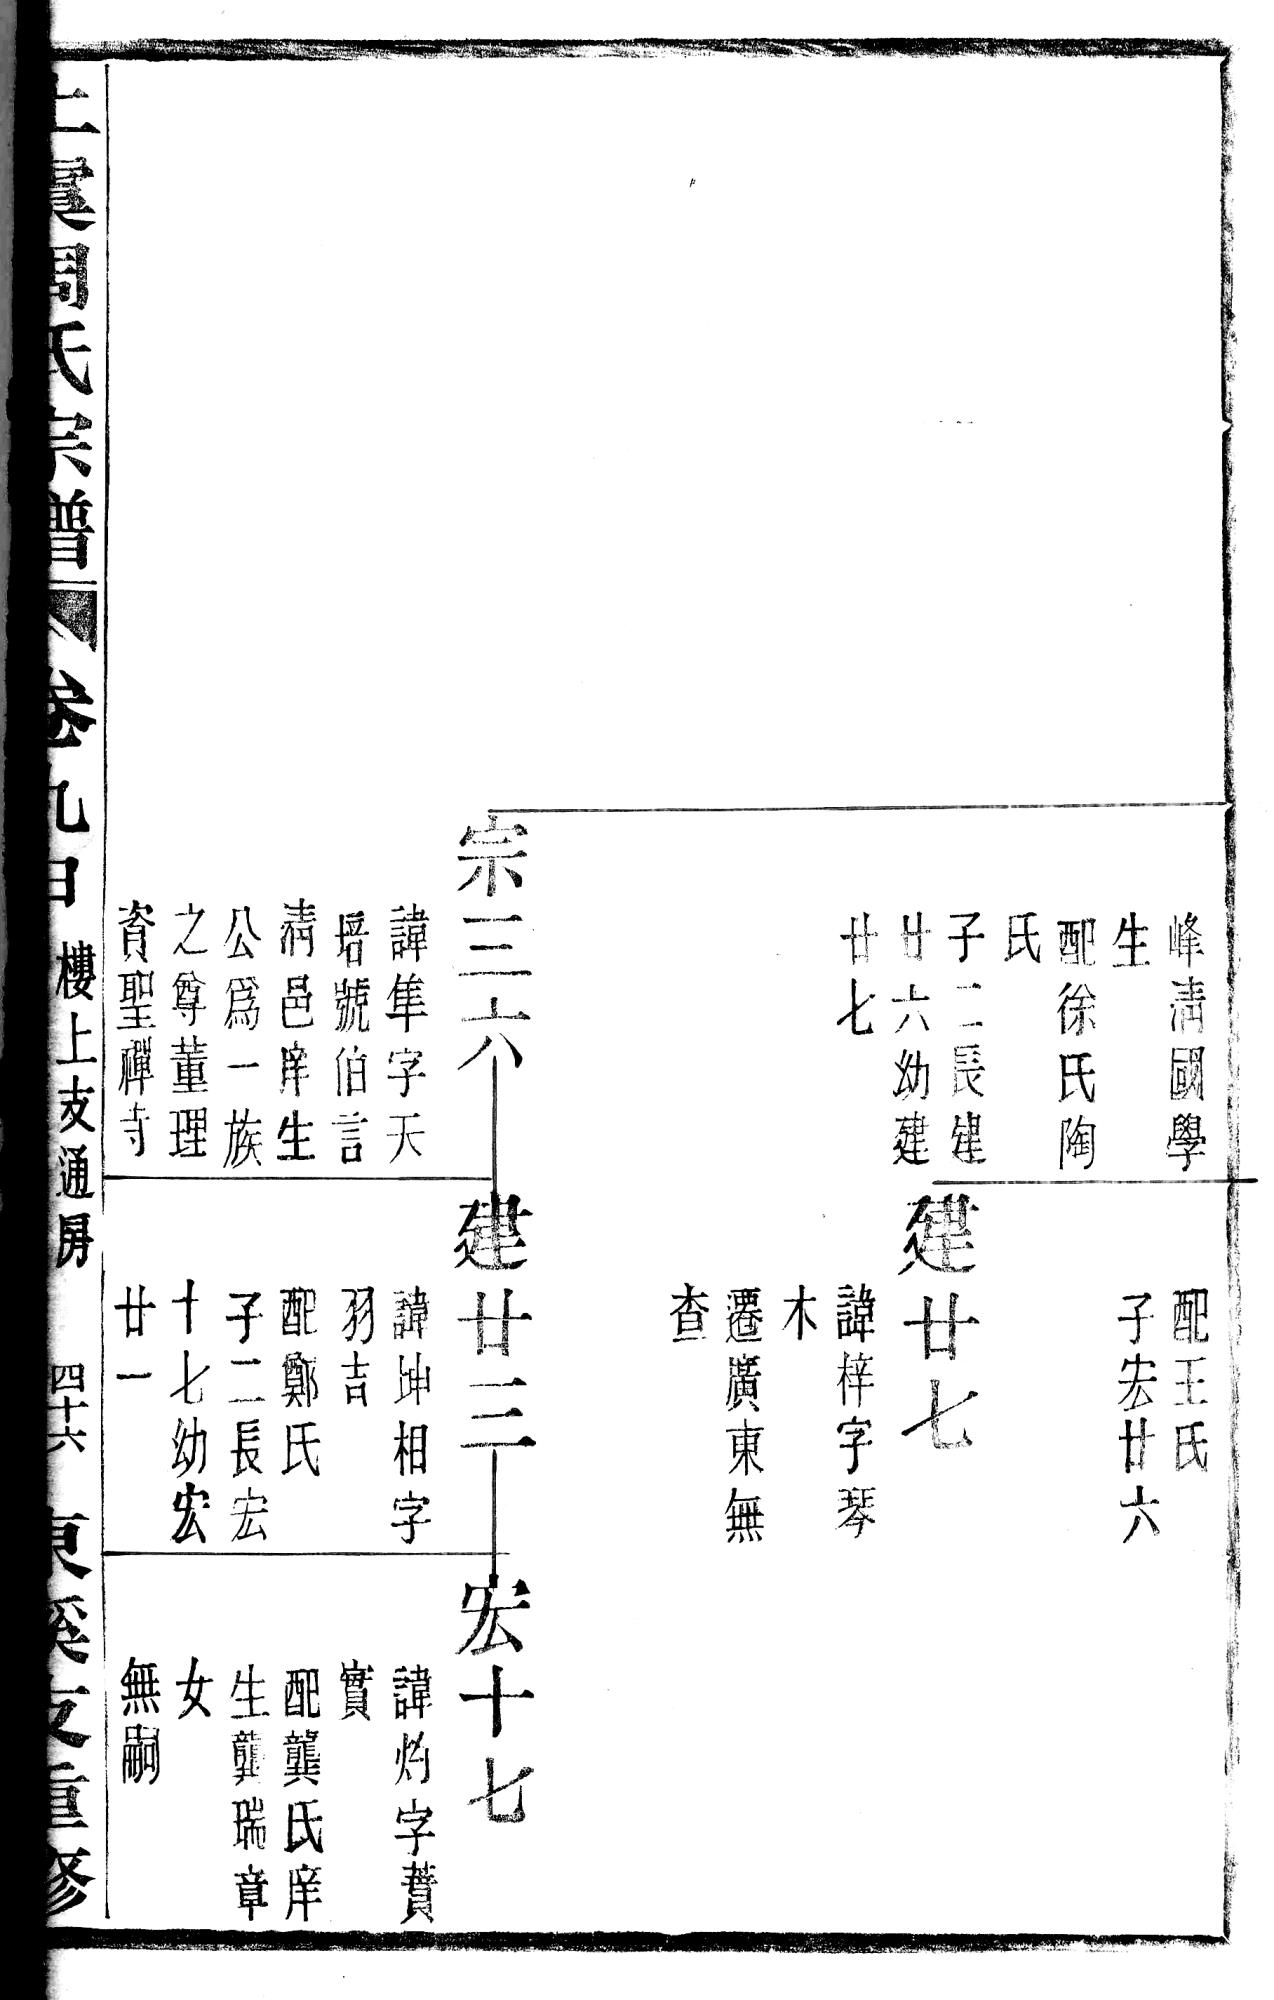 峰清國學
生
配徐氏陶
氏
子二長建
廿六幼建
廿七
配王氏
子宏廿六
建廿七
諱梓字琴
木
遷廣東無
查
宗三六
諱隼字天
培號伯言
清邑庠生
公爲一族
之尊董理
資聖禪寺
建廿三
諱坤相字
羽吉
配鄭氏
子二長宏
十七幼宏
廿一
宏十七
諱灼字蕡
實
配龔氏庠
生龔瑞章
女
無嗣
上虞周氏宗譜
卷九
樓上支通房
四十六
東溪支重修